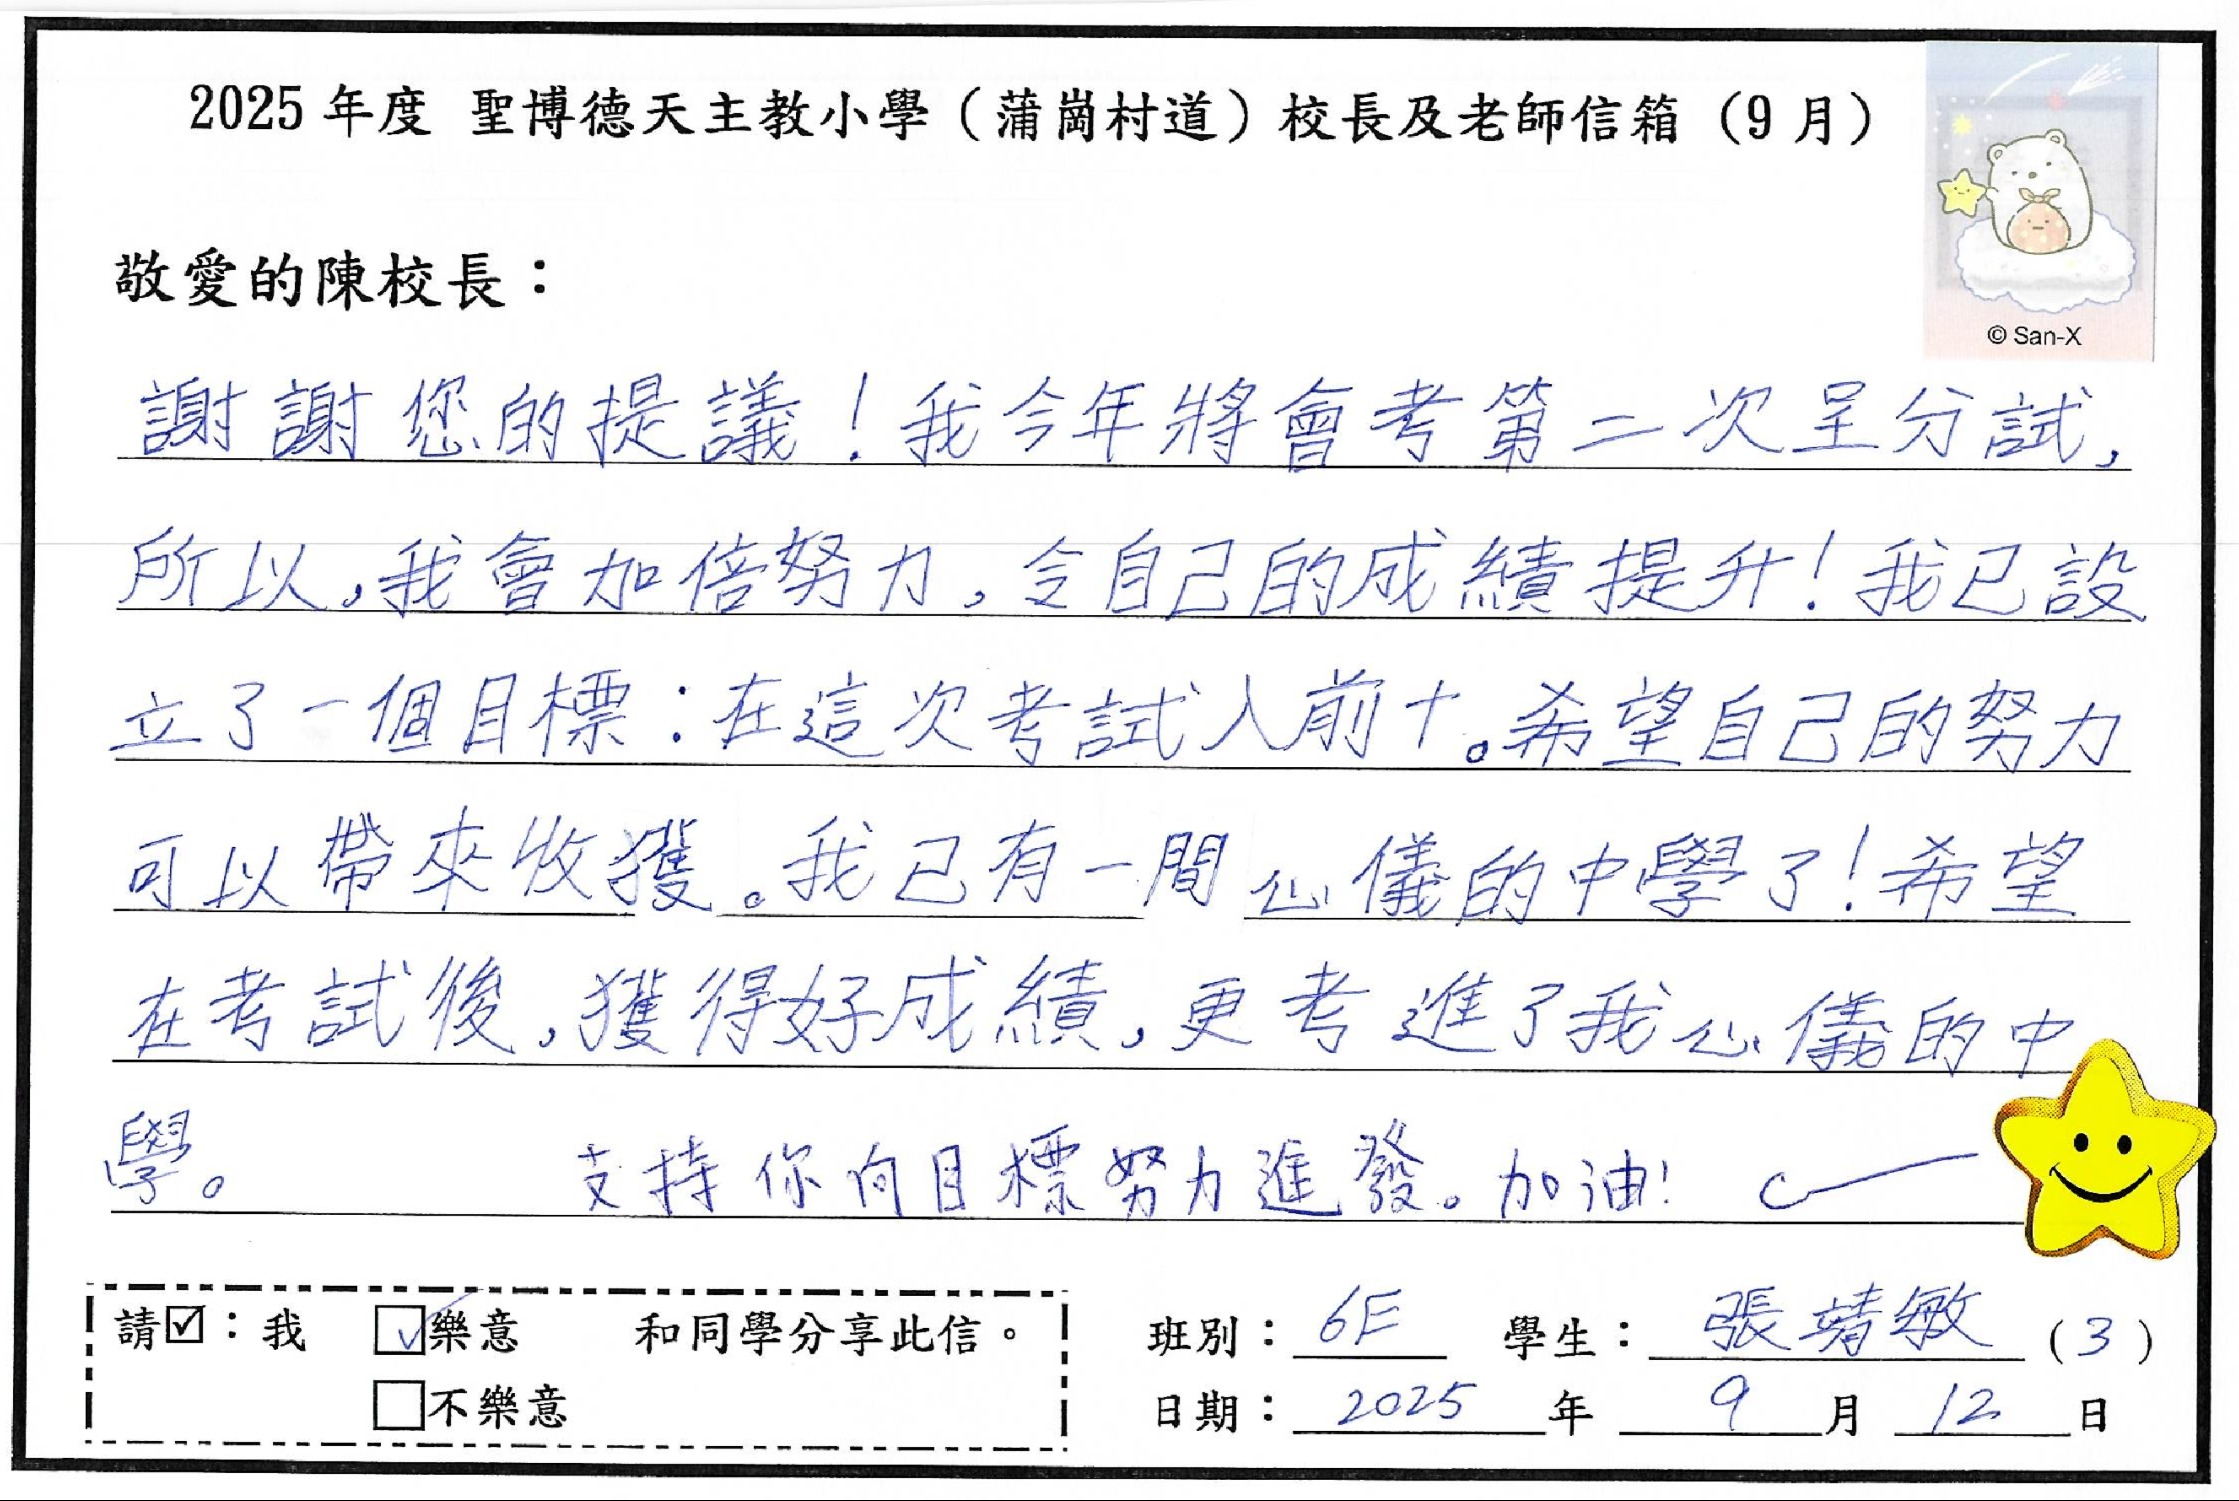 2025 年度 聖博德天主教小學（蒲崗村道）校長及老師信箱（9 月）
© San-X
敬愛的陳校長：
謝謝您的提議！我今年將會考第二次呈分試，
所以，我會加倍努力，令自己的成績提升！我已設
立了一個目標：在這次考試入前十。希望自己的努力
可以帶來收獲。我已有一間心儀的中學了！希望
在考試後，獲得好成績，更考進了我心儀的中
學。 支持你向目標努力進發。加油！
請☑：我 ☑樂意 和同學分享此信。
□不樂意
班別：6E 學生：張靖敏（3）
日期：2025 年 9 月 12 日